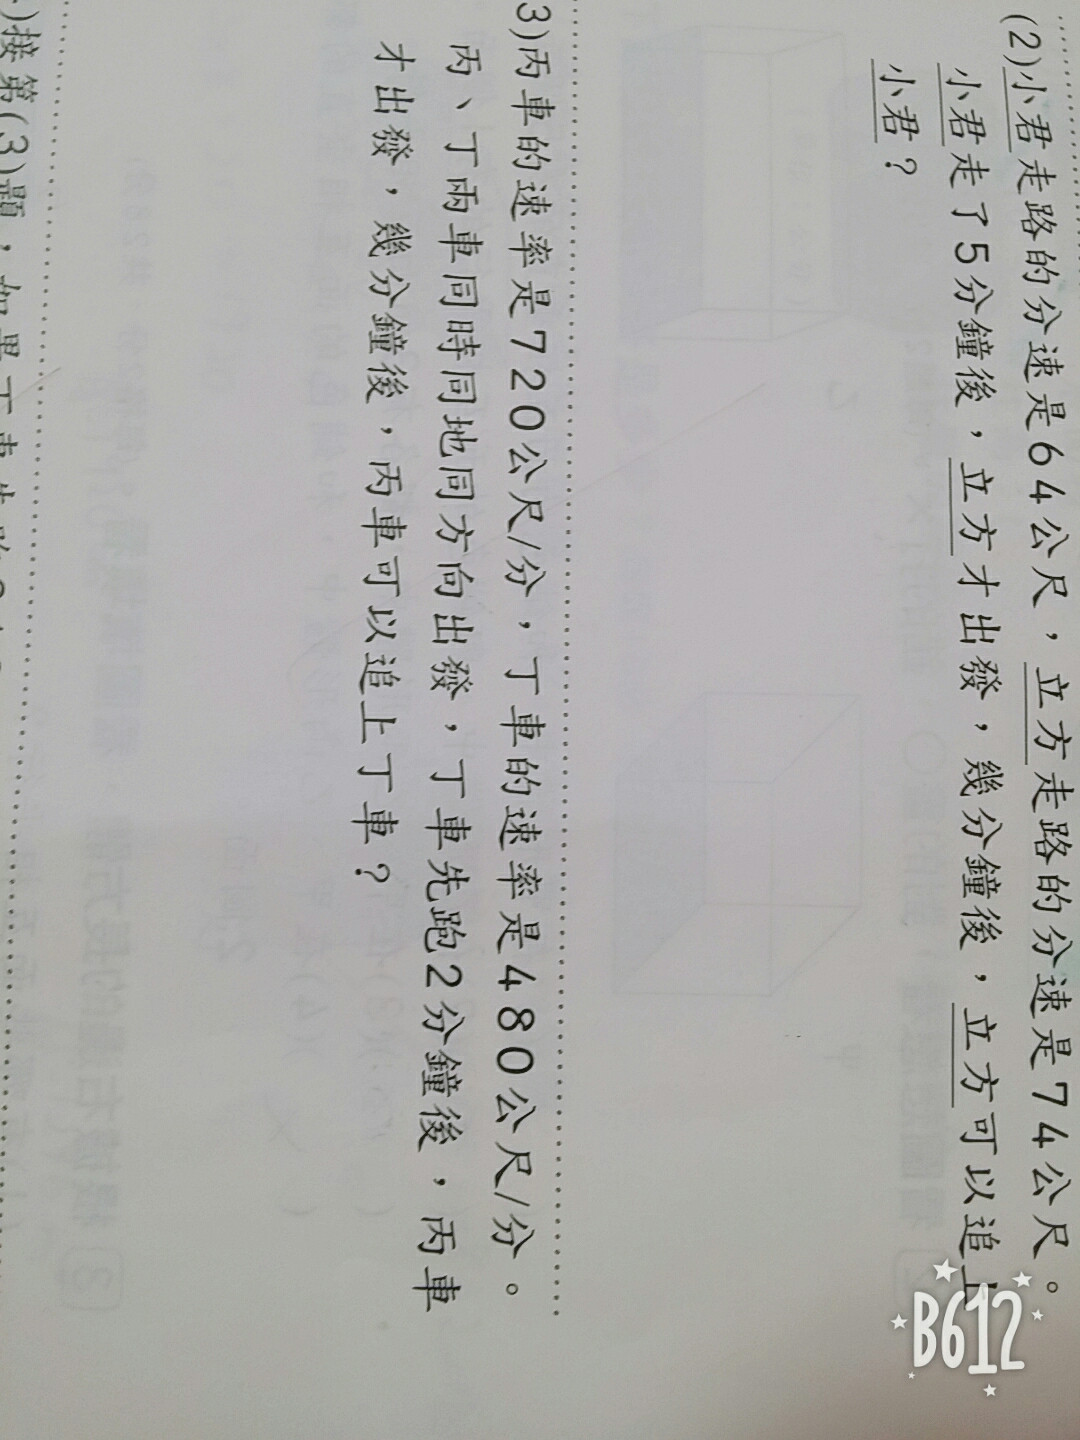 (2)小君走路的分速是64公尺，立方走路的分速是74公尺。
小君走了5分鐘後，立方才出發，幾分鐘後，立方可以追上
小君？
3)丙車的速率是720公尺/分，丁車的速率是480公尺/分。
丙、丁兩車同時同地同方向出發，丁車先跑2分鐘後，丙車
才出發，幾分鐘後，丙車可以追上丁車？
)接第(3)題，如果丁車先跑
B612